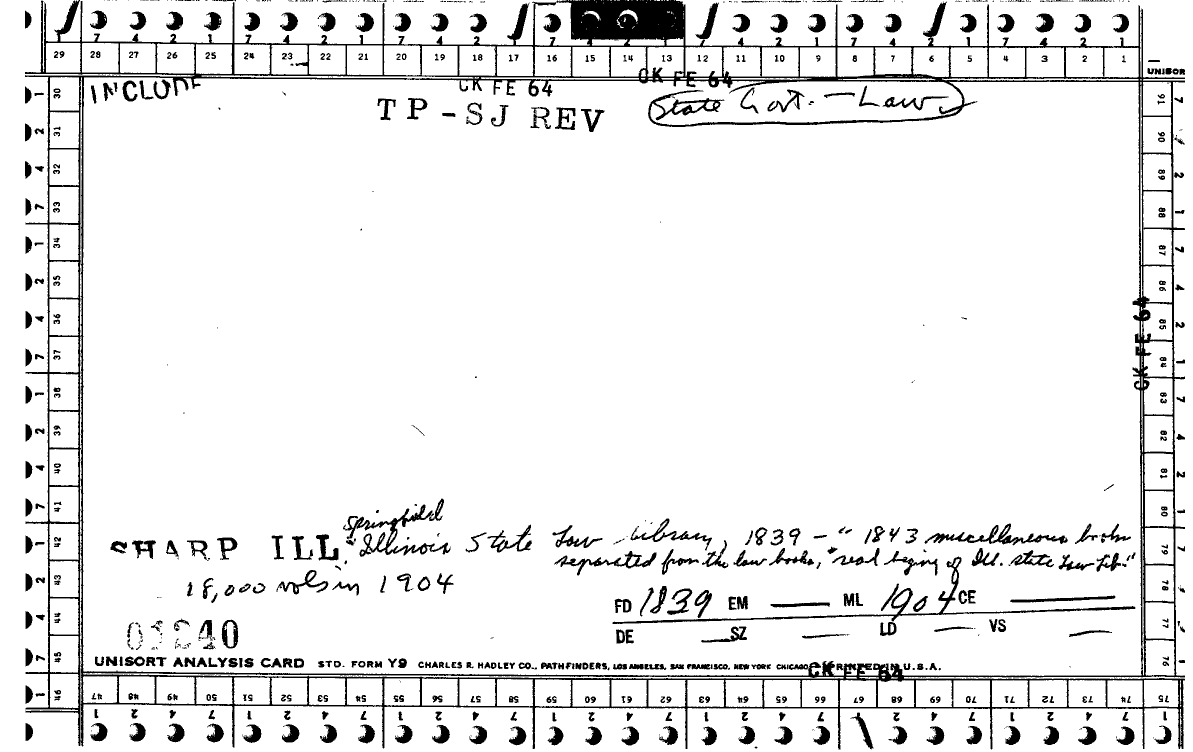 7 4 2 1 7 4 2 1 7 4 2 1 7 4 2 1 7 4 2 1 7 4 2 1 7 4 2 1
29 28 27 26 25 24 23 22 21 20 19 18 17 16 15 14 13 12 11 10 9 8 7 6 5 4 3 2 1
INCLUDE CK FE 64 CK FE 64 UNISOR
TP-SJ REV State Govt. - Law
30 31 32 33 34 35 36 37 38 39 40 41 42 43 44 45 46
91 90 89 88 87 86 85 84 83 82 81 80 79 78 77 76 75
CK FE 64
Springfield
SHARP ILL. "Illinois State Law Library, 1839 - " 1843 miscellaneous books
separated from the law books, "real beging of Ill. State Law Lib."
18,000 vols in 1904
FD 1839 EM ML 1904 CE
DE SZ LD VS
01240
UNISORT ANALYSIS CARD STD. FORM Y9 CHARLES R. HADLEY CO., PATHFINDERS, LOS ANGELES, SAN FRANCISCO, NEW YORK CHICAGO PRINTED IN U.S.A.
CK FE 64
47 48 49 50 51 52 53 54 55 56 57 58 59 60 61 62 63 64 65 66 67 68 69 70 71 72 73 74 75
1 2 4 7 1 2 4 7 1 2 4 7 1 2 4 7 1 2 4 7 1 2 4 7 1 2 4 7 1